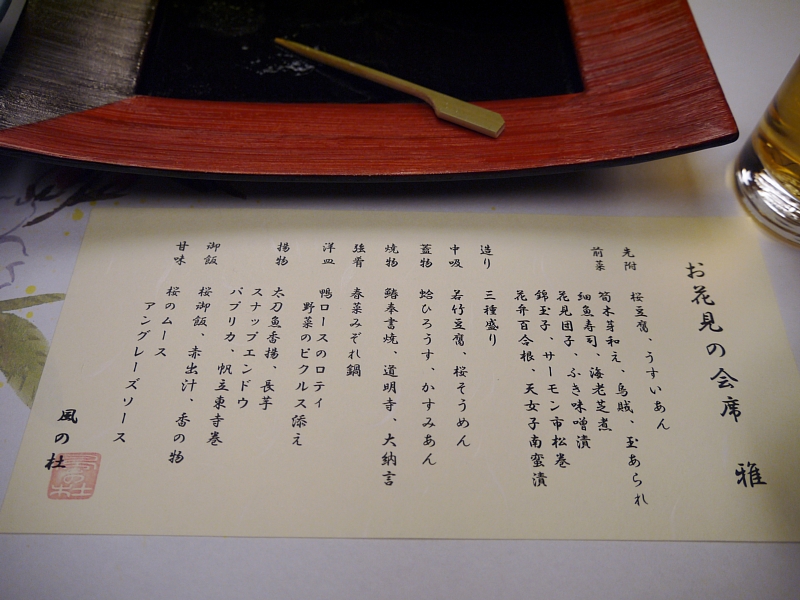 お花見の会席 雅
先附 桜豆腐、うすいあん
前菜 筍木芽和え、烏賊、玉あられ
細魚寿司、海老芝煮
花見団子、ふき味噌漬
錦玉子、サーモン市松巻
花弁百合根、天女子南蛮漬
造り 三種盛り
中吸 若竹豆腐、桜そうめん
蓋物 蛤ひろうす、かすみあん
焼物 鰆奉書焼、道明寺、大納言
強肴 春菜みぞれ鍋
洋皿 鴨ロースのロティ
野菜のピクルス添え
揚物 太刀魚香揚、長芋
スナップエンドウ
パプリカ、帆立東寺巻
御飯 桜御飯、赤出汁、香の物
甘味 桜のムース
アングレーズソース
風の杜